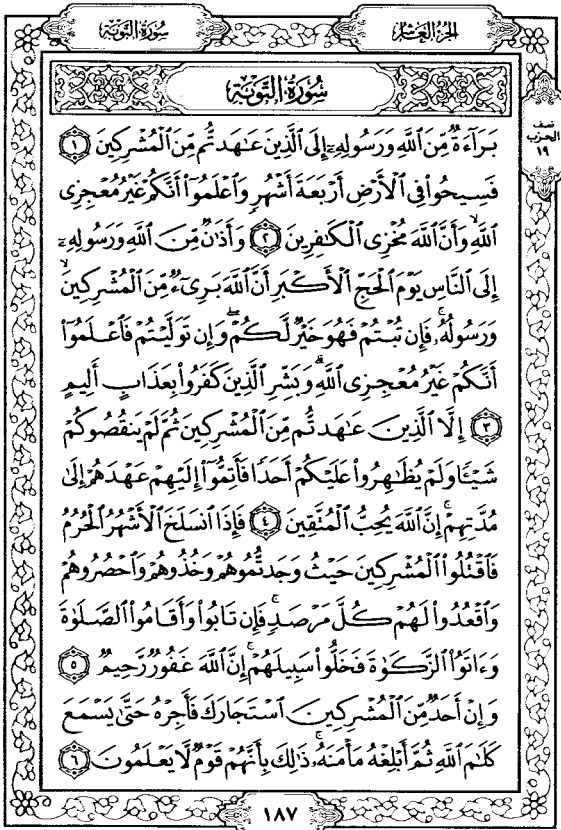 سُورَةُ التَّوْبَةِ
الجُزْءُ العَاشِرُ
نصف
الحزب
١٩
سُورَةُ التَّوْبَةِ
بَرَآءَةٌ مِّنَ ٱللَّهِ وَرَسُولِهِۦٓ إِلَى ٱلَّذِينَ عَٰهَدتُّم مِّنَ ٱلْمُشْرِكِينَ ١
فَسِيحُوا۟ فِى ٱلْأَرْضِ أَرْبَعَةَ أَشْهُرٍ وَٱعْلَمُوٓا۟ أَنَّكُمْ غَيْرُ مُعْجِزِى
ٱللَّهِ ۙ وَأَنَّ ٱللَّهَ مُخْزِى ٱلْكَٰفِرِينَ ٢ وَأَذَٰنٌ مِّنَ ٱللَّهِ وَرَسُولِهِۦٓ
إِلَى ٱلنَّاسِ يَوْمَ ٱلْحَجِّ ٱلْأَكْبَرِ أَنَّ ٱللَّهَ بَرِىٓءٌ مِّنَ ٱلْمُشْرِكِينَ ۙ
وَرَسُولُهُۥ ۚ فَإِن تُبْتُمْ فَهُوَ خَيْرٌ لَّكُمْ ۖ وَإِن تَوَلَّيْتُمْ فَٱعْلَمُوٓا۟
أَنَّكُمْ غَيْرُ مُعْجِزِى ٱللَّهِ ۗ وَبَشِّرِ ٱلَّذِينَ كَفَرُوا۟ بِعَذَابٍ أَلِيمٍ
٣ إِلَّا ٱلَّذِينَ عَٰهَدتُّم مِّنَ ٱلْمُشْرِكِينَ ثُمَّ لَمْ يَنقُصُوكُمْ
شَيْـًٔا وَلَمْ يُظَٰهِرُوا۟ عَلَيْكُمْ أَحَدًا فَأَتِمُّوٓا۟ إِلَيْهِمْ عَهْدَهُمْ إِلَىٰ
مُدَّتِهِمْ ۚ إِنَّ ٱللَّهَ يُحِبُّ ٱلْمُتَّقِينَ ٤ فَإِذَا ٱنسَلَخَ ٱلْأَشْهُرُ ٱلْحُرُمُ
فَٱقْتُلُوا۟ ٱلْمُشْرِكِينَ حَيْثُ وَجَدتُّمُوهُمْ وَخُذُوهُمْ وَٱحْصُرُوهُمْ
وَٱقْعُدُوا۟ لَهُمْ كُلَّ مَرْصَدٍ ۚ فَإِن تَابُوا۟ وَأَقَامُوا۟ ٱلصَّلَوٰةَ
وَءَاتَوُا۟ ٱلزَّكَوٰةَ فَخَلُّوا۟ سَبِيلَهُمْ ۚ إِنَّ ٱللَّهَ غَفُورٌ رَّحِيمٌ ٥
وَإِنْ أَحَدٌ مِّنَ ٱلْمُشْرِكِينَ ٱسْتَجَارَكَ فَأَجِرْهُ حَتَّىٰ يَسْمَعَ
كَلَٰمَ ٱللَّهِ ثُمَّ أَبْلِغْهُ مَأْمَنَهُۥ ۚ ذَٰلِكَ بِأَنَّهُمْ قَوْمٌ لَّا يَعْلَمُونَ ٦
١٨٧